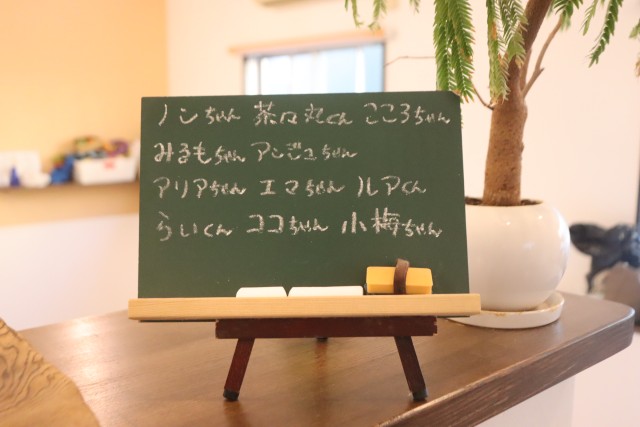 ノンちゃん 茶々丸くん こころちゃん
みるもちゃん アンジュちゃん
アリアちゃん エマちゃん ルアくん
らいくん ココちゃん 小梅ちゃん